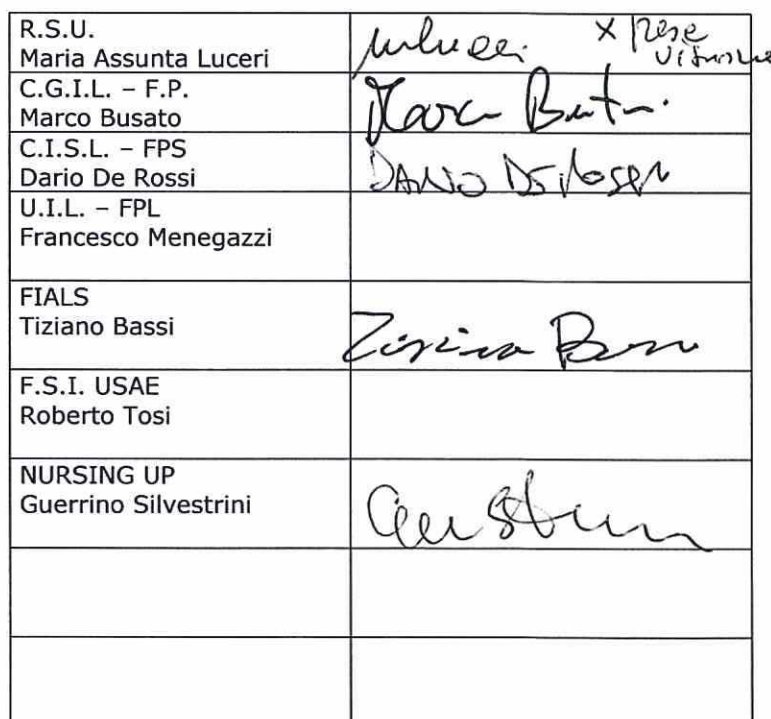 R.S.U.
Maria Assunta Luceri
x presa visione
C.G.I.L. – F.P.
Marco Busato
C.I.S.L. – FPS
Dario De Rossi
U.I.L. – FPL
Francesco Menegazzi
FIALS
Tiziano Bassi
F.S.I. USAE
Roberto Tosi
NURSING UP
Guerrino Silvestrini